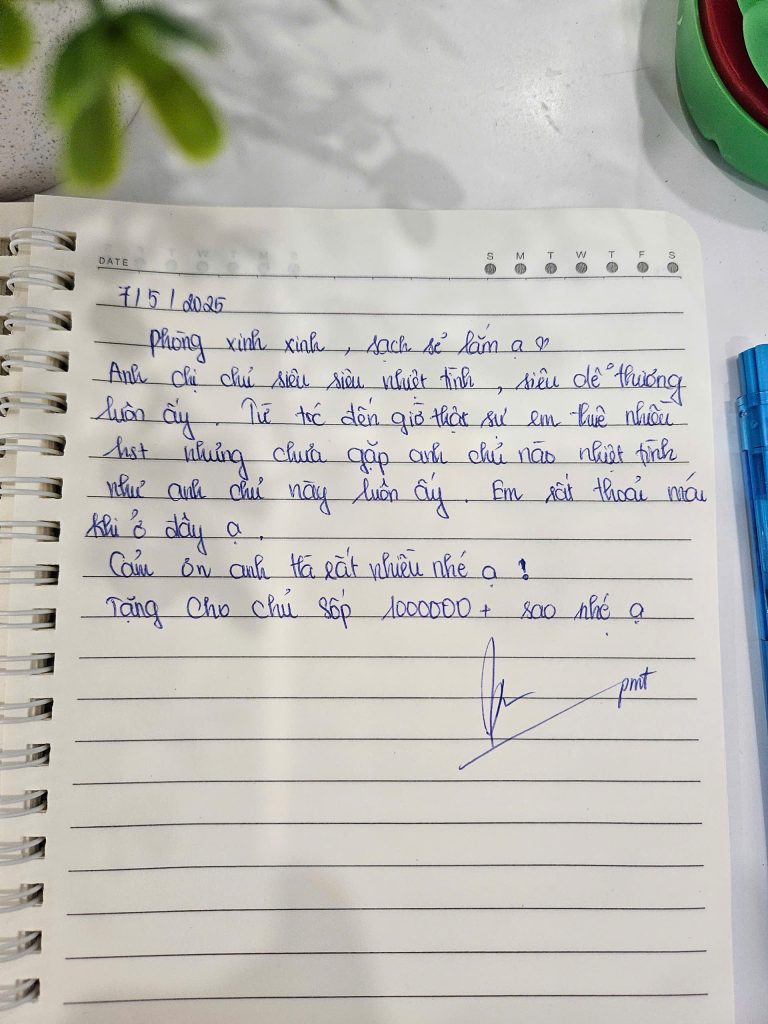 S M T W T F S
DATE
7/5/2025
Phòng xinh xinh, sạch sẽ lắm ạ ♡
Anh chị chủ siêu siêu nhiệt tình, siêu dễ thương
luôn ấy. Từ trc đến giờ thật sự em thuê nhiều
hst nhưng chưa gặp anh chủ nào nhiệt tình
như anh chủ này luôn ấy. Em rất thoải mái
khi ở đây ạ.
Cảm ơn anh Hà rất nhiều nhé ạ!
Tặng cho chủ sốp 1000000+ sao nhé ạ
pmt